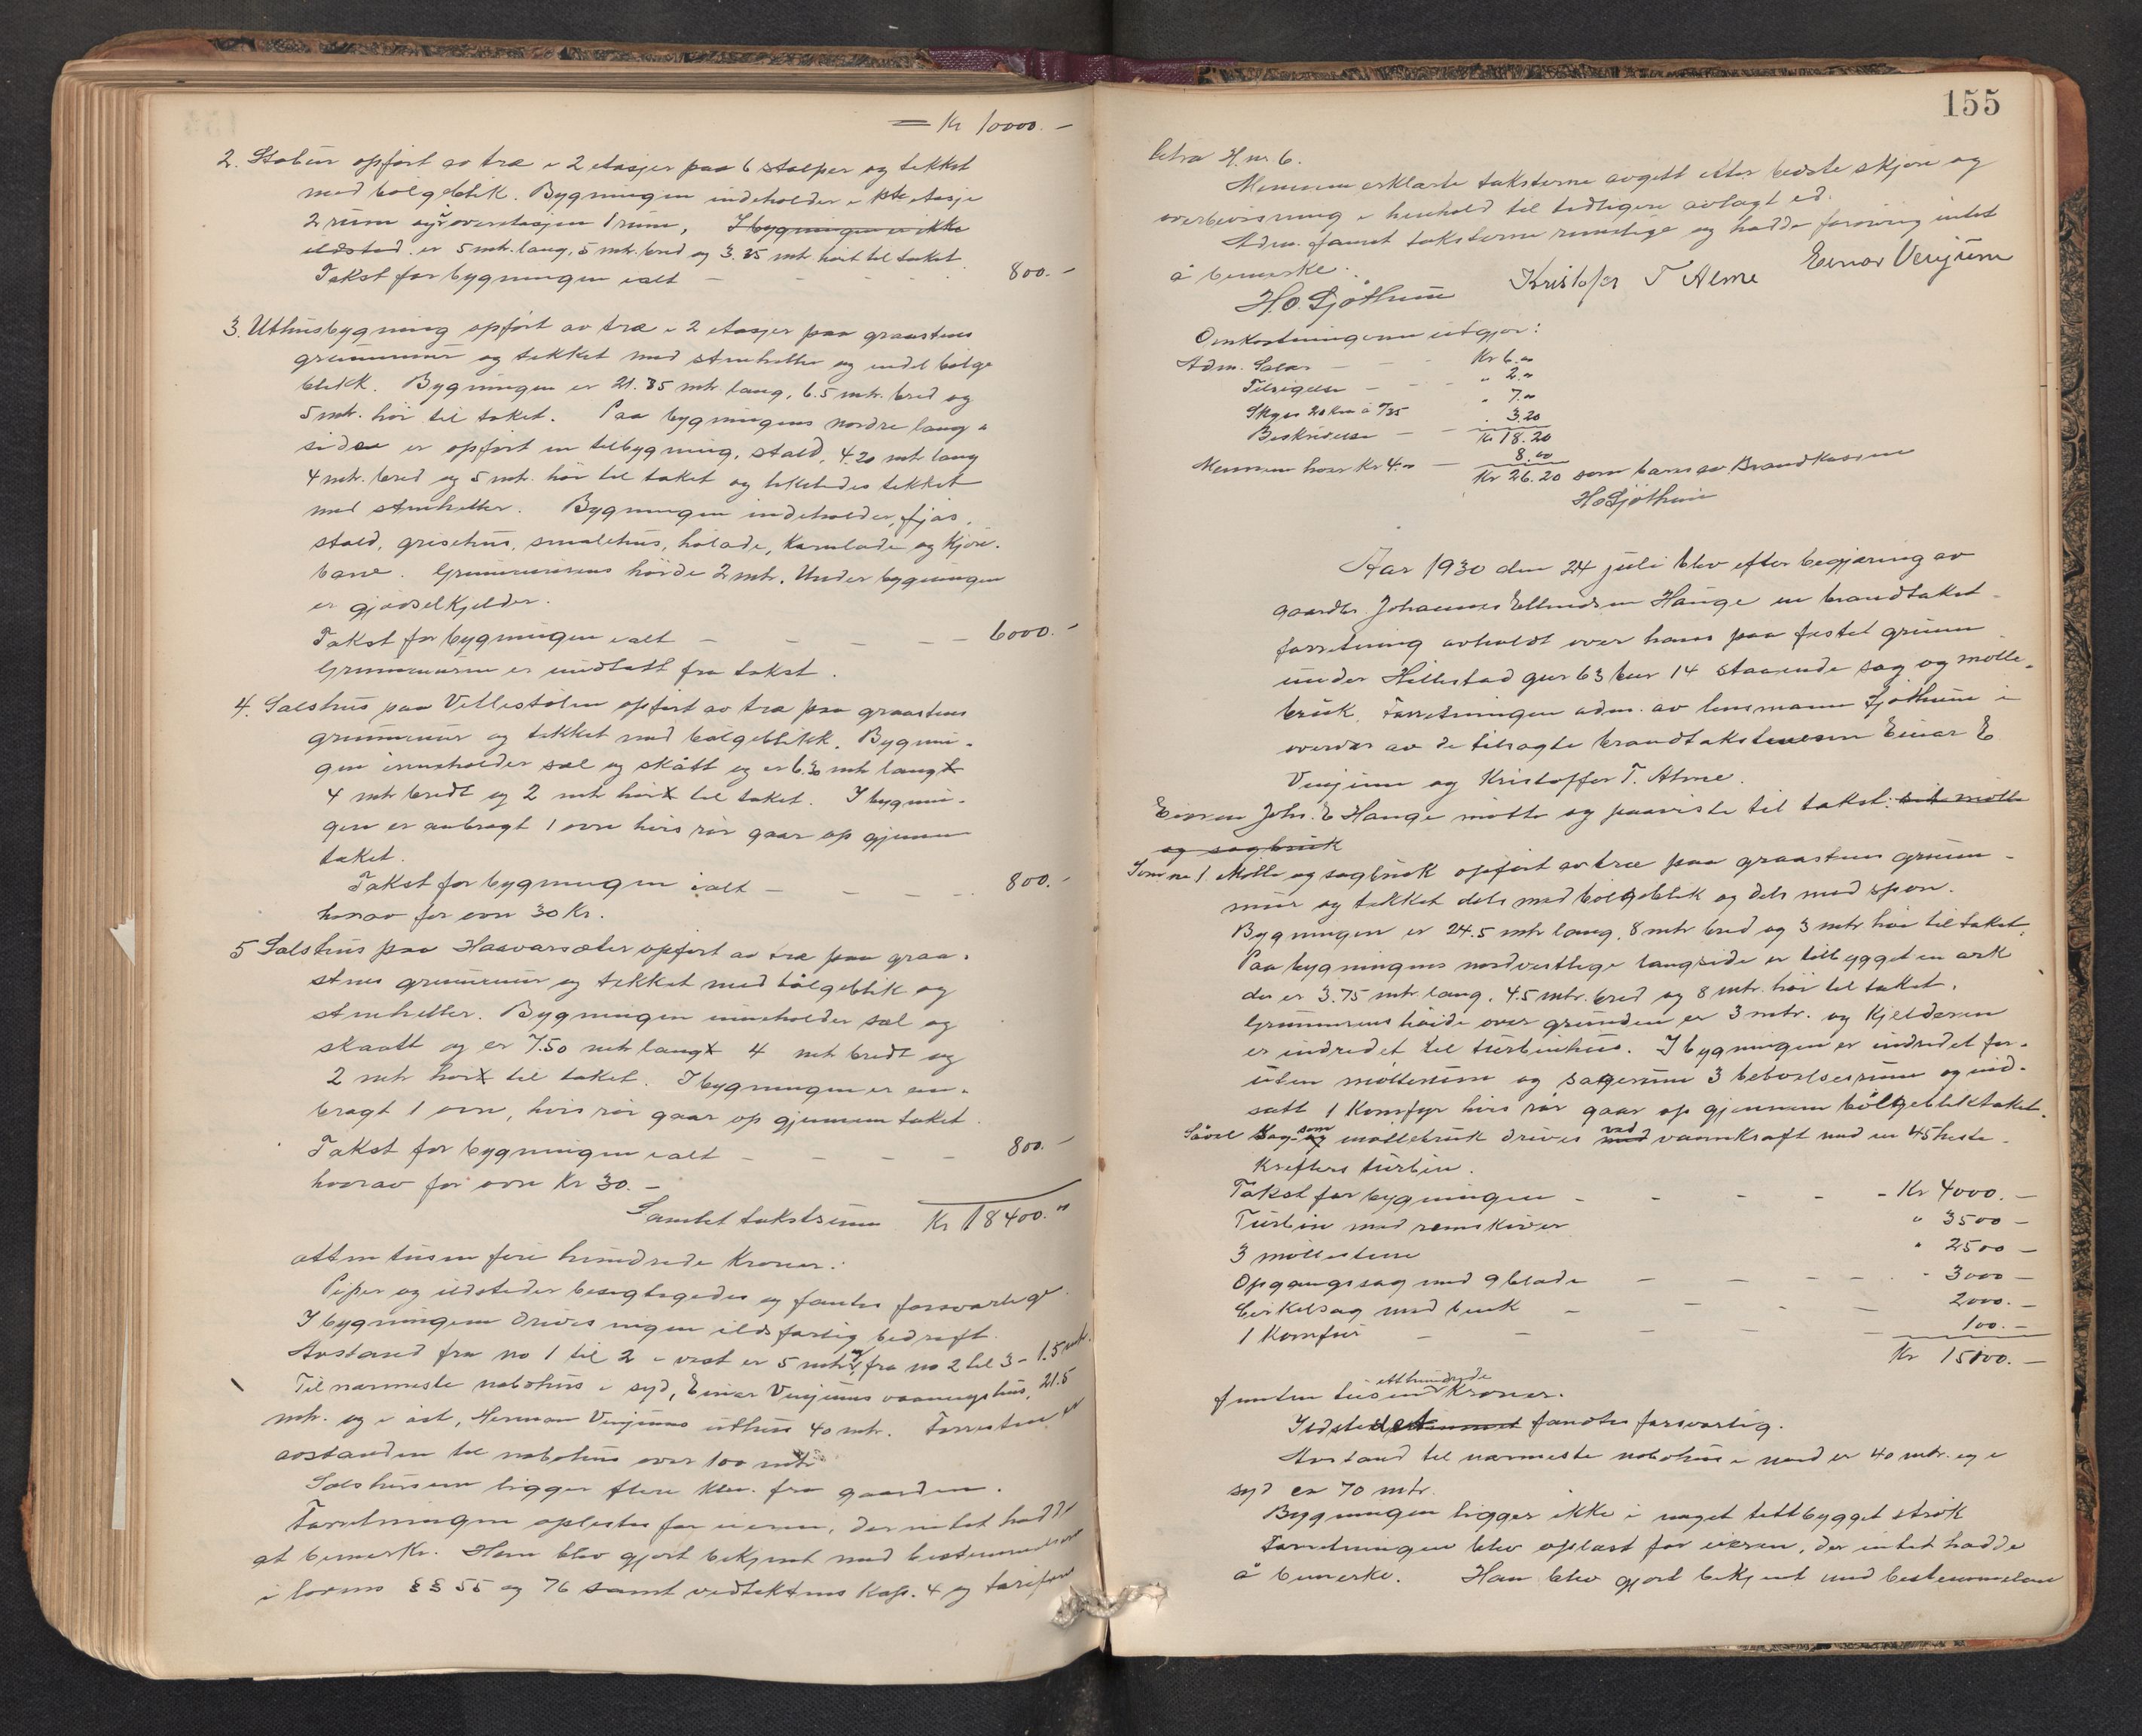 = Kr 10000.-
2. Stabur opført av træ i 2 etasjer paa 6 stolper og tekket
med bølgeblik. Bygningen indeholder i 1ste etasje
2 rum og i overetasjen 1 rum, I bygningen er ikke
ildsted. er 5 mtr. lang, 5 mtr. bred og 3.35 mtr. høit til taket
Takst for bygningen ialt - - - 800.-
3. Uthusbygning opført av træ i 2 etasjer paa graastens
grunnmur og tekket med stenheller og endel bølge
blikk. Bygningen er 21.35 mtr. lang, 6.5 mtr. bred og
5 mtr. høi til taket. Paa bygningens nordre lang-
side er opført en tilbygning, stald, 4.20 mtr lang
4 mtr. bred og 5 mtr. høi til taket og likeledes tekket
med stenheller. Bygningen indeholder, fjøs,
stald, grisehus, smalehus, hølade, kornlade og kjøre-
bane. Grunnmurens høide 2 mtr. Under bygningen
er gjødselkjelder.
Takst for bygningen ialt - - - - - 6000.-
Grunnmuren er undtatt fra takst.
4. Selshus paa Vetlestølen opført av træ paa graastens
grunnmur og tekket med bølgeblikk. Bygnin-
gen inneholder sel og skått og er 6.30 mtr langt
4 mtr bredt og 2 mtr høit til taket. I bygnin-
gen er anbragt 1 ovn hvis rør gaar op gjennem
taket.
Takst for bygningen ialt - - - - 800.-
herav for ovn 30 Kr.
5 Selshus paa Haavarsæter opført av træ paa graa-
stens grunnmur og tekket med bølgeblik og
stenheller. Bygningen inneholder sel og
skaatt og er 7.50 mtr langt 4 mtr bredt og
2 mtr høit til taket. I bygningen er an-
bragt 1 ovn, hvis rør gaar op gjennem taket.
Takst for bygningen ialt - - - - 800.-
hvorav for ovn Kr 30.-
Samlet takstsum Kr 18400.-
atten tusen fire hundrede Kroner.
Piper og ildsteder besigtigedes og fantes forsvarlige.
I bygningene drives ingen ildsfarlig bedrift.
Avstand fra no 1 til 2 i vest er 5 mtr og fra no 2 til 3 - 1.5 mtr.
Til nærmeste nabohus i syd, Einar Venjums vaaningshus, 21.5
mtr. og i øst, Herman Venjums uthus 40 mtr. Forresten er
avstanden til nabohus over 100 mtr
Selshusene ligger flere km. fra gaarden.
Forretningen oplestes for eieren, der intet hadde
at bemerke. Han blev gjort bekjent med bestemmelsene
i lovens §§ 55 og 76 samt vedtektenes Kap. 4 og tariffens
155
litra H. nr. 6.
Mennene erklærte taksterne avgitt efter bedste skjøn og
overbevisning i henhold til tidligere avlagt ed.
Adm. fannt taksterne rimelige og hadde forøvrig intet
å bemerke.
H.O. Sjøthun Kristofer T Alme Einar Venjum
Omkostningene utgjør:
Adm. Salær - - Kr 6.00
Tilsigelse - - - " 2.00
Skyss 20 km à 0/35 " 7.00
Beskrivelse - - " 3.20
Kr 18.20
Mennene hver Kr 4.00 - 8.00
Kr 26.20 som bæres av Brandkassen
HO Sjøthun
Aar 1930 den 24 juli blev efter begjæring av
gaardbr. Johannes Ellendsen Hauge en brandtakst-
forretning avholdt over hans paa festet grunn
under Hillestad gnr 63 bnr 14 staaende sag og mølle-
bruk. Forretningen adm. av lensmann Sjøthun i
overvær av de tilsagte brandtakstmenn Einar E
Venjum og Kristoffer T. Alme.
Eieren Johs. E Hauge møtte og paaviste til takst: sit mølle
og sagbruk
Som no 1. Mølle og sagbruk opført av træ paa graastens grunn-
mur og tekket dels med bølgeblik og dels med spon.
Bygningen er 24.5 mtr lang, 8 mtr bred og 3 mtr. høi til taket.
Paa bygningens nordvestlige langside er tilbygget en ark
der er 3.75 mtr. lang, 4.5 mtr. bred og 8 mtr. høi til taket.
Grunnmurens høide over grunden er 3 mtr. og kjelderen
er indredet til turbinhus. I bygningen er indredet for-
uten møllerum og sagerum 3 beboelsesrum og ind-
satt 1 Komfyr hvis rør gaar op gjennem bølgebliktaket.
Såvel Sag- som og møllebruk drives ved med vannkraft med en 45 heste-
krefters turbin.
Takst for bygningen - - - - - Kr 4000.-
Turbin med remskiver " 3500-
3 møllestene " 2500-
Opgangssag med 9 blade - - - - " 3000-
Cirkelsag med benk - - - - 2000.-
1 Komfur - - - - - 100.-
Kr 15100.-
femten tusen etthundrede Kroner.
Ildstedet fandtes forsvarlig.
Avstand til nærmeste nabohus i nord er 40 mtr. og i
syd ca 70 mtr.
Bygningen ligger ikke i noget tettbygget strøk
Forretningen blev oplæst for eieren, der intet hadde
å bemerke. Han blev gjort bekjent med bestemmelsene